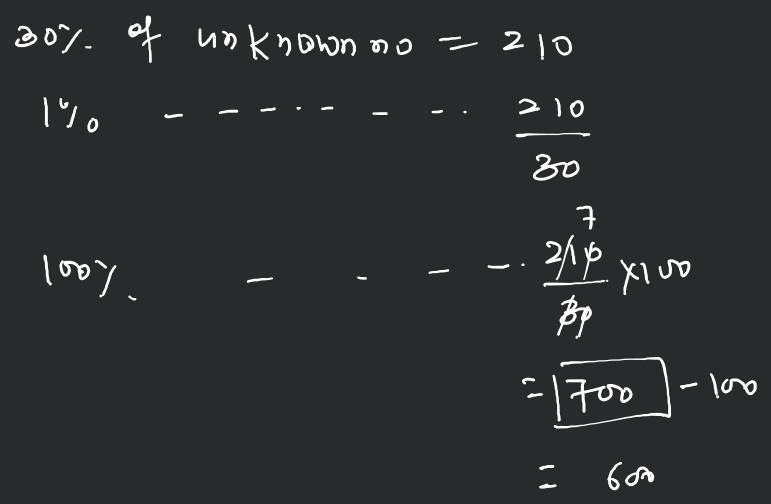 30% of unknown no = 210
1% - - - - - - - - 210/30
100% - - - - 7 210/30 x100
= 700 - 100
= 600